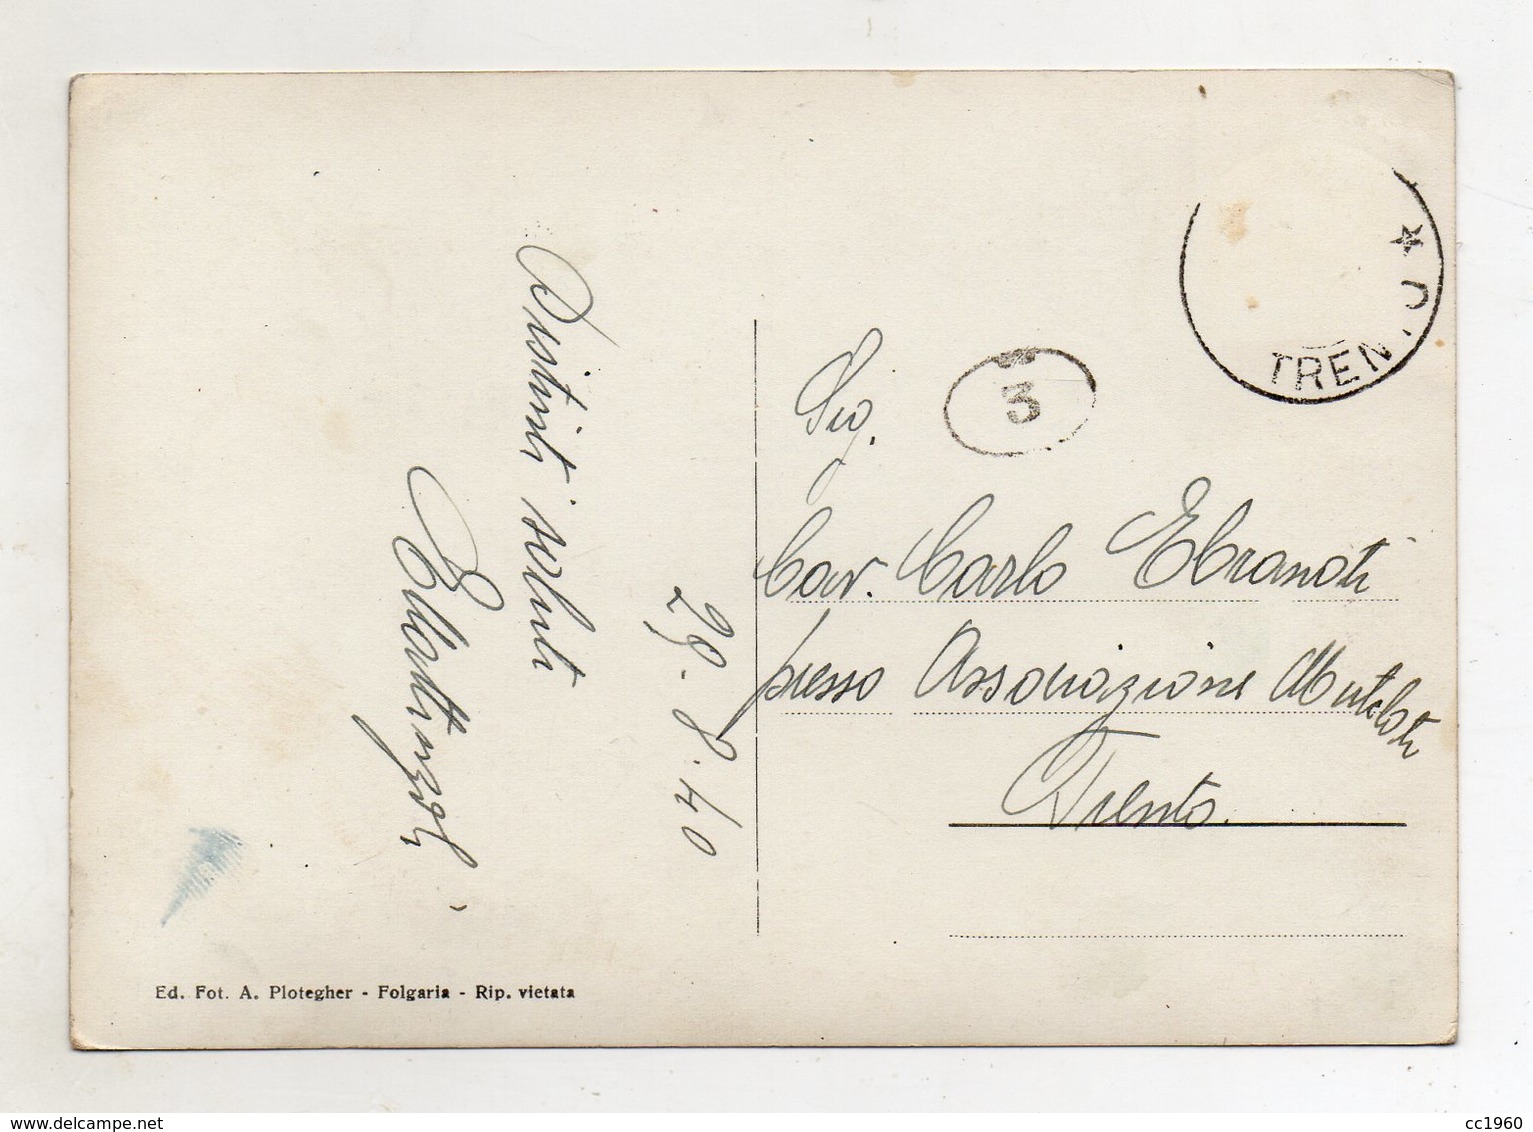 Distinti saluti
29.8.40
Sig.
Cav. Carlo Ebranati
presso Associazione Mutilati
Trento.
3
TRENTO
Ed. Fot. A. Plotegher - Folgaria - Rip. vietata
www.delcampe.net
cc1960